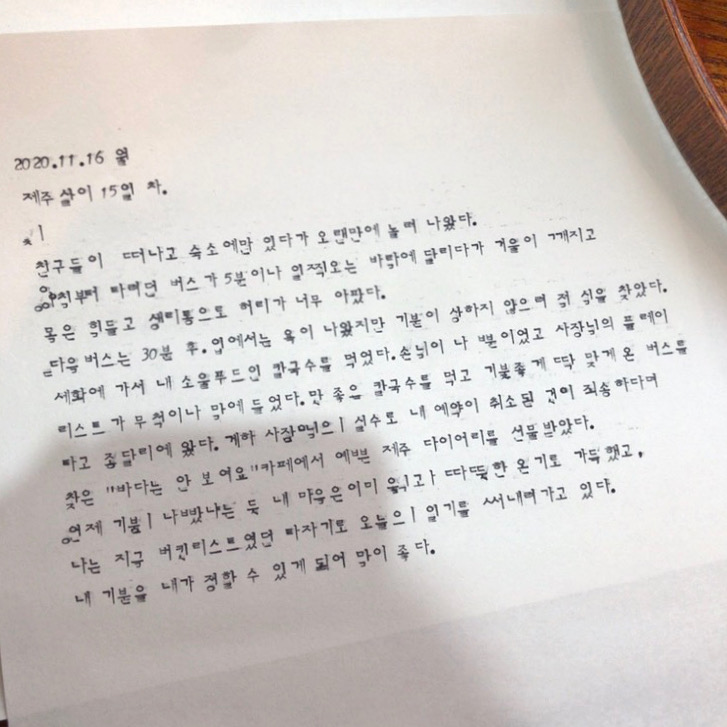 2020.11.16 월
제주 살이 15일 차.
친구들이 떠나고 숙소에만 있다가 오랜만에 놀러 나왔다.
아침부터 타려던 버스가 5분이나 일찍오는 바람에 달리다가 거울이 깨지고
몸은 힘들고 생리통으로 허리가 너무 아팠다.
다음 버스는 30분 후. 입에서는 욕이 나왔지만 기분이 상하지 않으려 적 식을 찾았다.
세화에 가서 내 소울푸드인 칼국수를 먹었다. 손님이 나 뿐이었고 사장님의 플레이
리스트가 무척이나 맘에 들었다. 맛 좋은 칼국수를 먹고 기분좋게 딱 맞게 온 버스를
타고 종달리에 왔다. 게하 사장님의 실수로 내 예약이 취소된 것이 죄송하다며
찾은 "바다는 안 보여요"카페에서 예쁜 제주 다이어리를 선물받았다.
언제 기분이 나빴냐는 듯 내 마음은이미 따뜻한 온기로 가득했고,
나는 지금 버킷리스트였던 타자기로 오늘의 일기를 써내려가고 있다.
내 기분을 내가 정할 수 있게 되어 맘이 좋다.